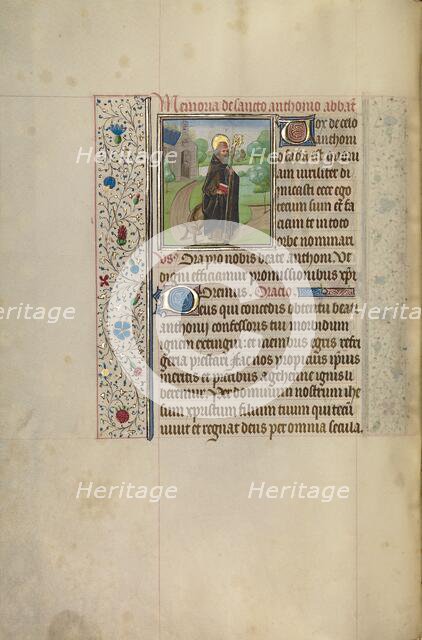 Memoria de sancto anthonio abbat
Vox de celo
anthoni
o facta est quoni
am viriliter di
micasti ecce ego
tecum sum et fa
ciam te in toto
orbe nominari
Vs Ora pro nobis beate anthoni Ut
digni efficiamur promissionibus xpi
Oremus Oracio
Deus qui concedis obtentu beati
anthonij confessoris tui morbidum
ignem extingui et membris egris refri
geria prestari fac nos propiciatus ipius
meritis et precibus a gehenne ignis li
beremur Per dominum nostrum ihe
sum xpristum filium tuum qui tecum
vivit et regnat deus per omnia secula
Heritage Heritage Heritage
Heritage Heritage
Heritage Heritage Heritage